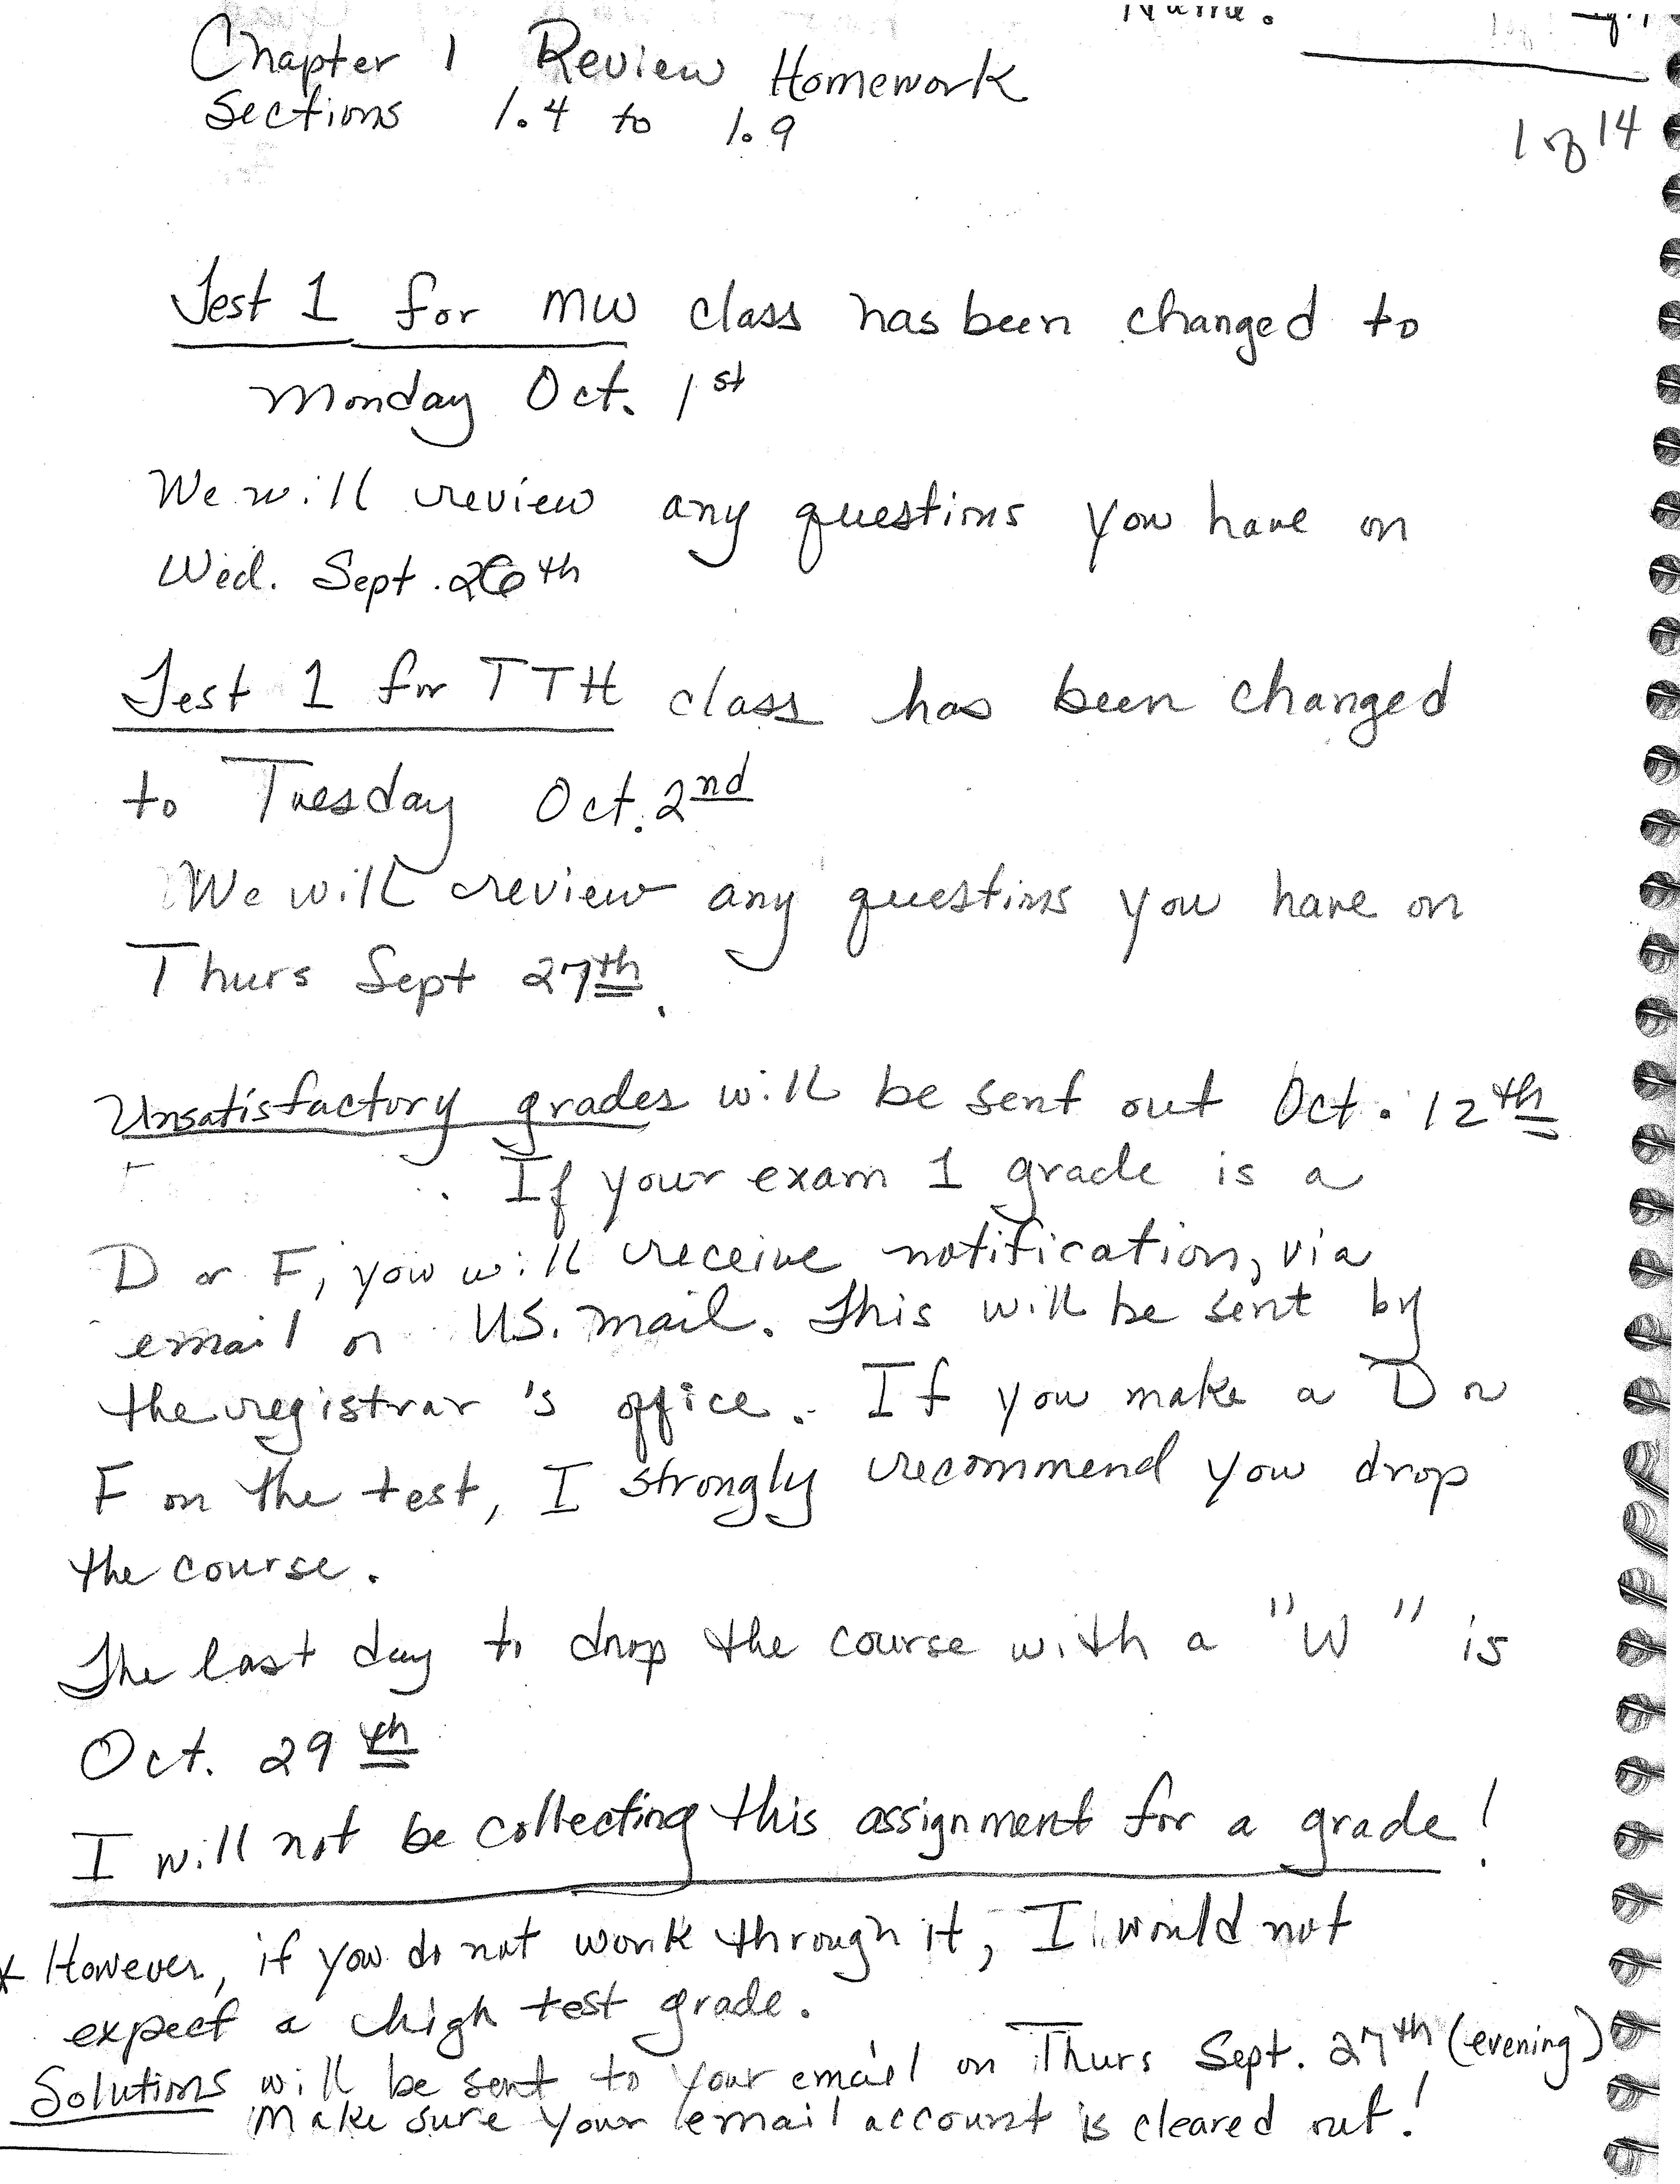 Name.
Chapter 1 Review Homework
Sections 1.4 to 1.9
1 of 14
Test 1 for MW class has been changed to
Monday Oct. 1st
We will review any questions you have on
Wed. Sept. 26th
Test 1 for TTH class has been changed
to Tuesday Oct. 2nd
We will review any questions you have on
Thurs Sept 27th.
Unsatisfactory grades will be sent out Oct. 12th
If your exam 1 grade is a
D or F, you will receive notification, via
email or US. mail. This will be sent by
the registrar's office. If you make a D or
F on the test, I strongly recommend you drop
the course.
The last day to drop the course with a "W" is
Oct. 29th
I will not be collecting this assignment for a grade!
* However, if you do not work through it, I would not
expect a high test grade.
Solutions will be sent to your email on Thurs Sept. 27th (evening)
Make sure your email account is cleared out!